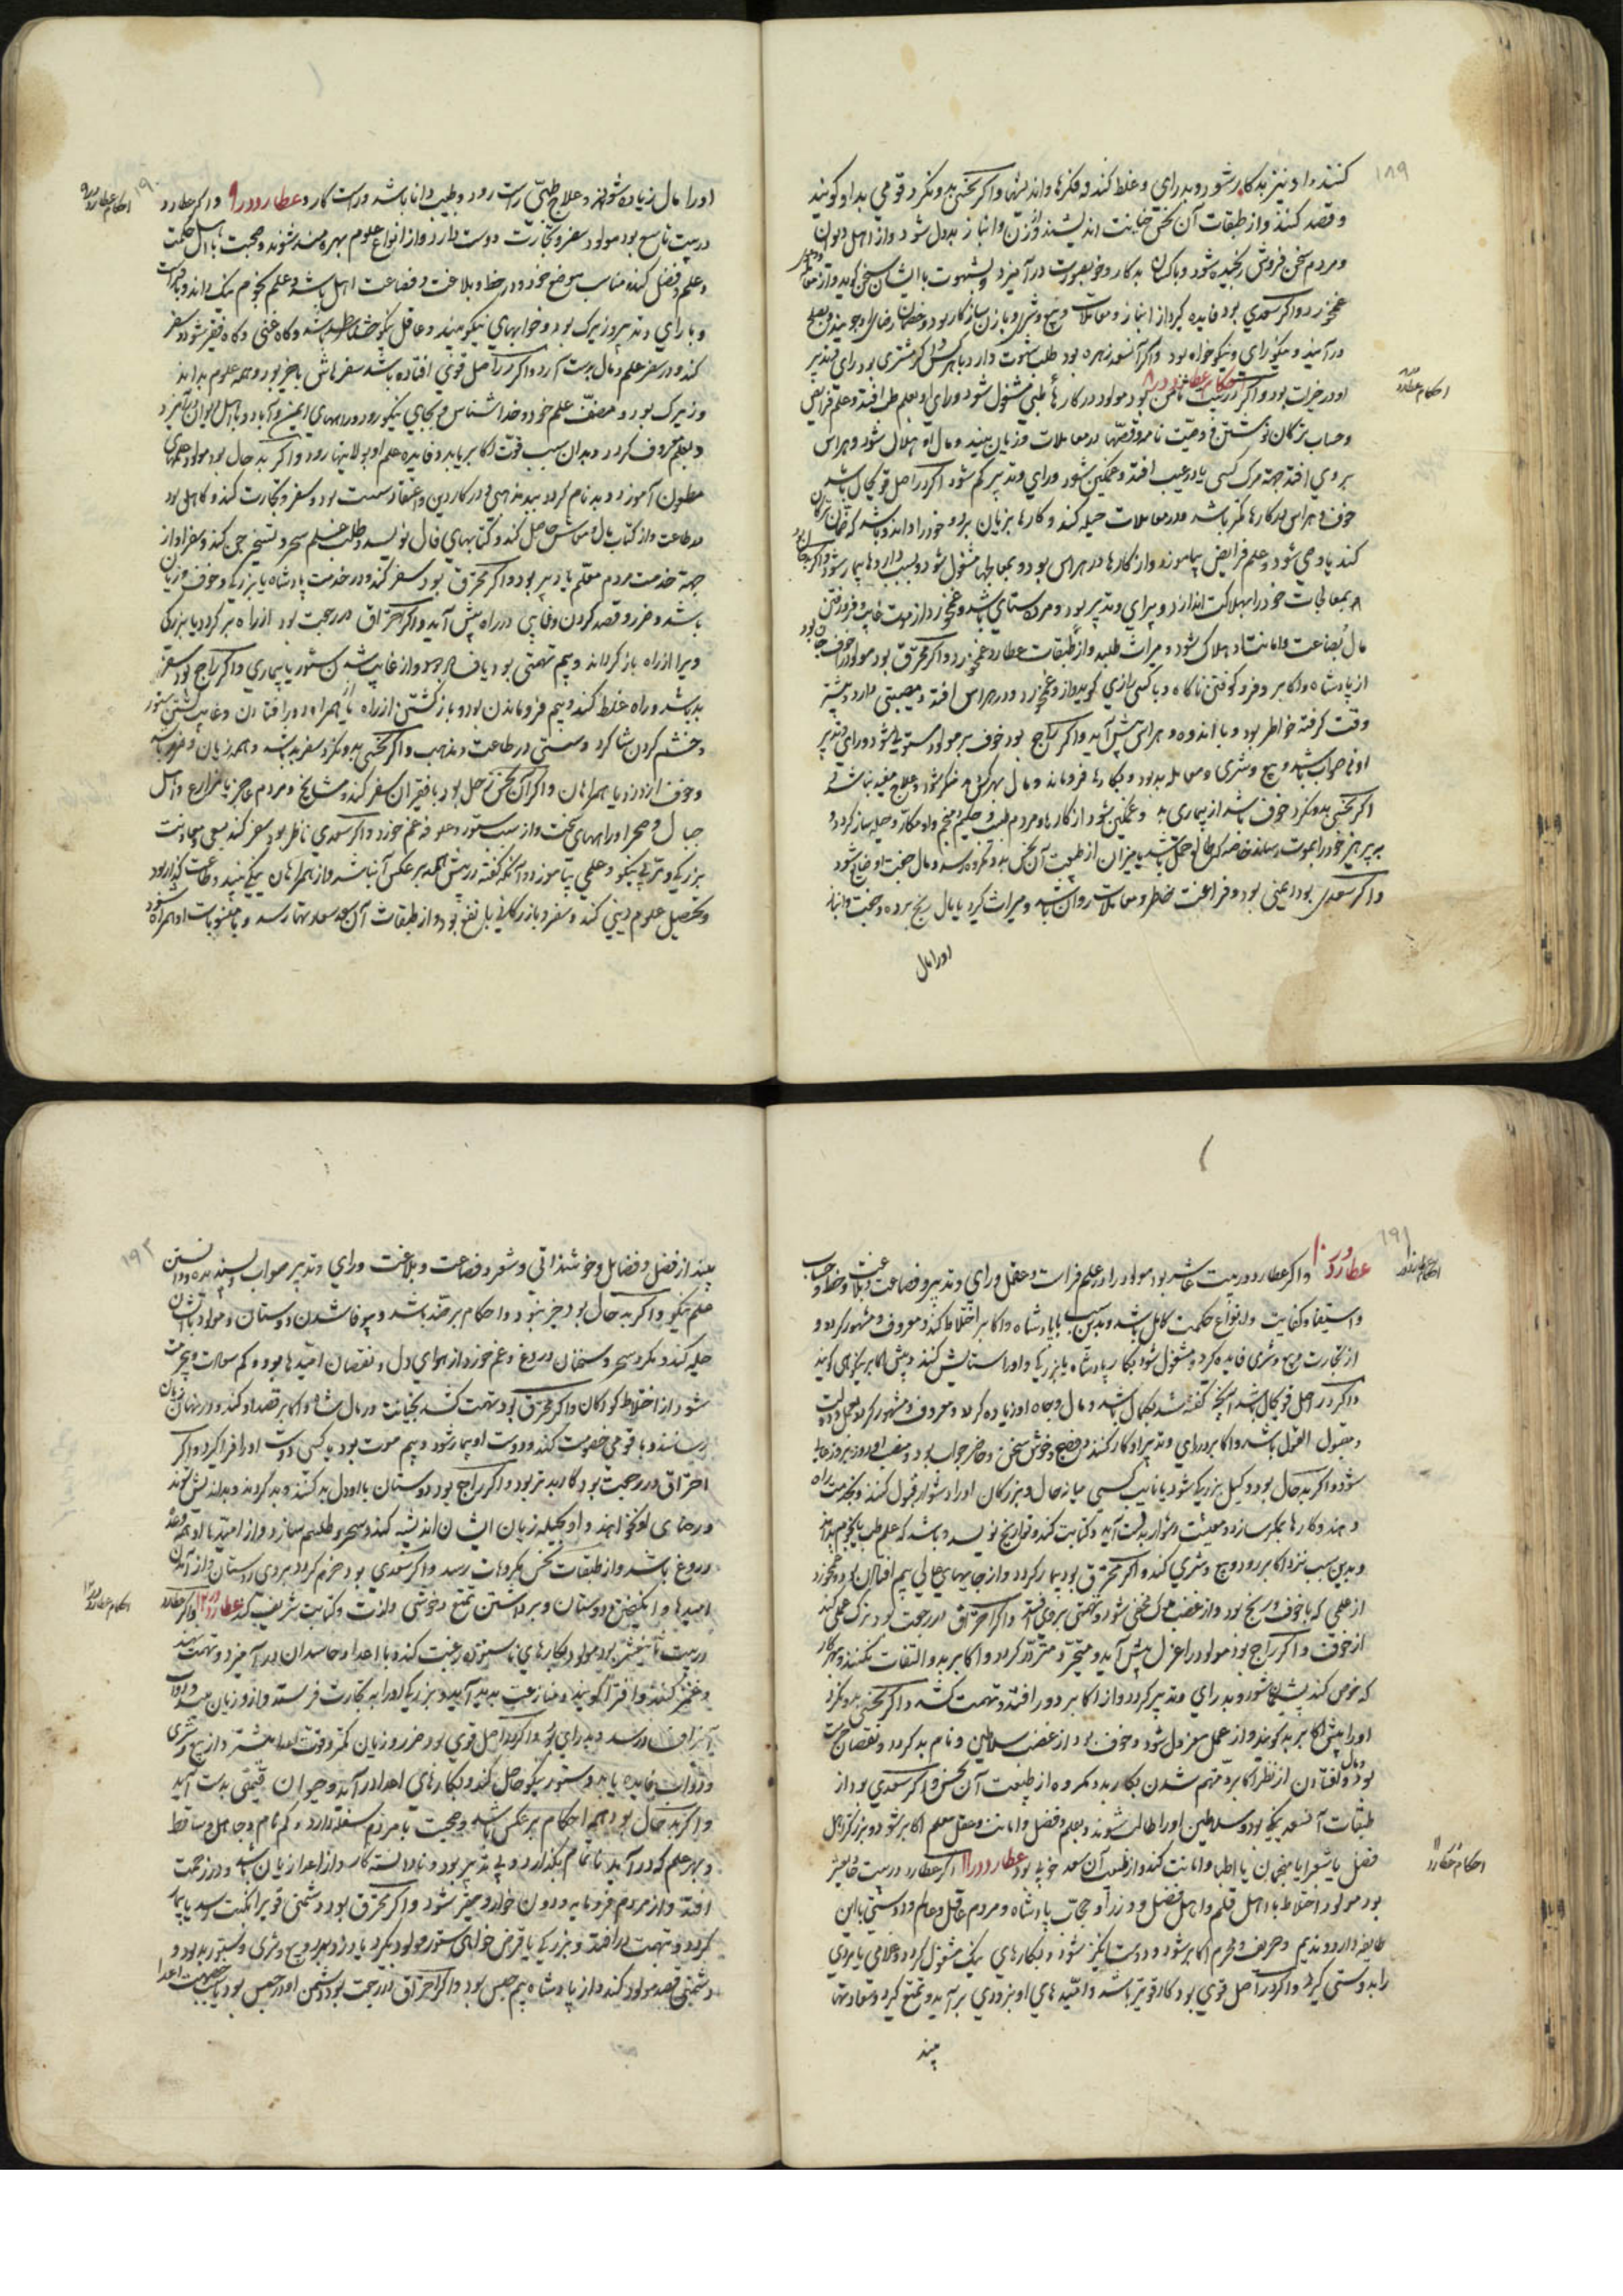 ۱۸۹
کنند و او نیز بدکار شود و بدرای و غلط کند و فکرها و اندیشها و اگر نحسی بدو نگرد قومی بد او گویند
و قصد کنند و از طبقات آن نحس خیانت اندیشند و زن و انباز بددل شود و از اهل دیوان
و مردم سخن فروش رنجیده شود و با کسان بدکار و خوبصورت درآمیزد و بشهوت با ایشان سخن گوید و از
غم خورد و اگر سعدی بود فایده گیرد از انباز و معاملات و بیع و شری و با زن سازگار بود و خصمان رضای او جویند و بصلح
درآیند و نیکورای و نیکوخواه بود و اگر آنسعد زهره بود طلب شهوت دارد با هر کس و اگر مشتری بود رای و تدبیر
او در خیرات بود و اگر در بیت ثامن بود مولود در کارهای طبی مشغول شود و رای او بعلم طب افتد و علم فرایض
احکام عطارد در ۸
احکام عطارد در ۸
و حساب ترکان نوشتن و وصیت نامه و قصها در معاملات و زیان بیند و مال او هلال شود و هراس
بروی افتد بجهة مرک کسی یا در عیب افتد و غمکین شود و رای و تدبیر کم شود اگر در اصل قوی حال باشد
خوف و هراس در کارها کمتر باشد و در معاملات حیله کند و کارها بزیان برد و خود را داند و باشد که
کند یا وصی شود و علم فرایض بیاموزد و از کارها در هراس بود و بمعالجها مشغول شود و بسبب دارو ها بیمار شود و اگر بدحال بود
بمعالجات خود را بهلاکت اندازد و بیرای و تدبیر بود و مرده ستای باشد و غم خورد از موت غایب و فرورفتن
مال بضاعت و امانت و هلاک شود و میراث طلبد و از طبقات عطارد غم خورد و اگر محترق بود مولود را خوف جان بود
از پادشاه و اکابر و فرو کوفتن ناگاه و با کسی رازی گوید و از او غم خورد و در هراس افتد و مصیبتی دارد و بیشتر
وقت گرفته خاطر بود و با اندوه و هراس پیش آید و اگر راجع بود خوف بر مولود مستولی شود و رای و تدبیر
او نی صواب باشد و بیع و شری و معامله بد بود و بکارها فروماند و مال بهر کس دهد منکر شود و علاج مفید نباشد
اگر نحسی بدو نگرد خوف باشد از بیماری بد و غمکین شود از کارها و مردم طبیب و حکیم و منجم و او مکار و حیله ساز گردد
بی پرهیز خود را بموت رساند خاصه که طالع حمل باشد یا میزان از طبیعت آن نحس بدو مکروه رسد و مال جفت او ضایع شود
و اگر سعدی بود ایمنی بود و فراغت خاطر و معاملات روان باشد و میراث گیرد یا مال رنج برده و جفت و انباز
او را مال

۱۹۰
او را مال زیاده شود و علاج طبی راست رود و طبیب دانا باشد و راست کار و عطارد در ۹ و اگر عطارد
احکام عطارد در ۹
در بیت تاسع بود مولود سفر و تجارت دوست دارد و از انواع علوم بهره مند شوند و صحبت با اهل حکمت
و علم و فضل کند مناسب موضع خود و در خط و بلاغت و فصاحت اهل باشد و علم نجوم نیک داند و با فراست
و با رای و تدبیر و زیرک بود و خوابهای نیکو بیند و عاقل و نیکو خط باشد و گاه غنی و گاه فقیر شود و سفر
کند و در سفر علم و مال بدست آرد و اگر در اصل قوی افتاده باشد سفرهاش با خیر بود و همه علوم بداند
و زیرک بود و مصنف علم خود و خداشناس و بجای نیکو رود و راههای ایمن و آباد و با اهل دیوان
و بعلم معروف گردد و بدان سبب قوت اکابر یابد و فایده علم او بولایتها رود و اگر بدحال بود مولود علمهای
مطعون آموزد و بدنام گردد بیدینی و در کار دین و اعتقاد سست بود و سفر و تجارت کند و کاهل بود
در طاعت و از کتاب مال و معاش حاصل کند و کتابهای فال نویسد و طلب علم سحر و تسخیر جن کند و سفر او از
جهة خدمت مردم معلم یا دبیر بود و اگر محترق بود سفر کند و در خدمت پادشاه یا بزرگی و خوف و زیان
باشد و ضرر و قصد کردن و فاش در راه پیش آید و اگر احتراق در رجعت بود از راه برگردد یا بزرگی
ویرا از راه بازگرداند و بیم تهمتی بود یا فساد و از غایب شدن ستور یا بیماری و اگر راجع بود سفرش
بد باشد و راه غلط کند و بیم فروماندن بود و بازگشتن از راه یا همراه و دور افتادن و غایب شدن ستور
و خشم کردن شاگرد و سستی در طاعت و مذهب و اگر نحسی بدو نگرد سفر بد باشد و همه زیان و ضرر باشد
و خوف از دزد یا همراهان و اگر آن نحس زحل بود با فقیران سفر کند و مشایخ و مردم عاجز یا مزارع و اهل
جبال و صحرا و راههای سخت و از سبب ستور و علوفه غم خورد و اگر سعدی ناظر بود سفر کند بسعی و معاونت
بزرگی و تربیتی نیکو و علمی بیاموزد و آنکه گفته در پیش همه برعکس آن باشد و از همراهان نیکی بیند و طاعت گذار بود
و تحصیل علوم دینی کند و سفر و بازرگانی با نفع بود و از طبقات آن سعد سعادتها رسد و با منسوبات او همراه شود

۱۹۱
عطارد در ۱۰ و اگر عطارد در بیت عاشر بود مولود را در علم فراست و عقل و رای و تدبیر و فصاحت و بلاغت و خط و حساب
احکام عطارد در ۱۰
و استیفا و کفایت و انواع حکمت کامل باشد و بدین سبب با پادشاه و اکابر اختلاط کند و معروف و مشهور گردد و
از تجارت و بیع و شری فایده گیرد و مشغول شود بکار پادشاه یا بزرگی و او را ستایش کنند و پیش اکابر نیکویی گویند
و اگر در اصل قوی حال باشد آنچه گفته شد بکمال باشد و مال و جاه او زیاده گردد و معروف و مشهور گردد
و مقبول القول باشد و اکابر بر رای و تدبیر او کار کنند و فصیح و خوش سخن و حاضر جواب بود و منصب او روز بروز
شود و اگر بدحال بود وکیل بزرگی شود یا نایب کسی میانه حال و بزرگان او را دشوار قبول کنند و بخدمت راه
دهند و کارها بمکر سازد و معیشت دشوار بدست آید و کتابت کند و تواریخ نویسد و باشد که علم طب یا نجوم بداند
و بدین سبب نزد اکابر رود و بیع و شری کند و اگر محترق بود بیمار گردد و از جایهای عالی بیم افتادن بود و غم خورد
از عملی که با خوف و رنج بود و از غضب ملک مخفی شود و تهمتی بروی افتد و اگر احتراق در رجعت بود ترک عمل کند
از خوف و اگر راجع بود مولود را عزل پیش آید و متحیر و متردد گردد و اکابر بدو التفات نکنند و بهر کار
که خوض کند پشیمان شود و بدرای و تدبیر گردد و از اکابر دور افتد و تهمت کشد و اگر نحسی بدو نگرد
او را پیش اکابر بد گویند و از عمل معزول شود و خوف بود از غضب سلاطین و نام بد گردد و نقصان حرمت
بود و افتادن از نظر اکابر و متهم شدن بکار بد و مکروه از طبیعت آن نحس و اگر سعدی بود از
طبقات آنسعد نیکی بود و سلاطین او را طالب شوند و بعلم و فضل و امانت و عقل معلم اکابر شود و بزرگتر اهل
فضل یا شعرا یا منجمان یا اطبا و امانت کند و از طبیعت آن سعد خوبی بود عطارد در ۱۱ اگر عطارد در بیت حادیعشر
احکام عطارد ۱۱
بود مولود اختلاط با اهل قلم و اهل فضل و وزرا و حجاب پادشاه و مردم عاقل و عالم و دوستی با این
طایفه دارد و ندیم و حریف و محرم اکابر شود و دوست انگیز شود و بکارهای نیک مشغول گردد و غلامی یا مردی
را بدوستی گیرد و اگر در اصل قوی بود کار قویتر باشد و امیدهای او بزودی برآید و تمتع گیرد و سعادتها
بیند

۱۹۲
بیند از فضل و فضایل و خوشذاتی و شعر و فصاحت و بلاغت و رای و تدبیر صواب و پسندیده و دانستن
علم نیکو و اگر بدحال بود خیر نبود و احکام بر ضد باشد و بیوفا شدن دوستان و مولود با ایشان
حیله کند و مکر و سحر و سخنان دروغ و غم خورد از هوای دل و نقصان امیدها بود و کم سعادت و بیحرمت
شود از اختلاط کودکان و اگر محترق بود تهمت کشد بخیانت در مال شاه و اکابر قصد او کنند و در نهان زیان
رسانند و با قومی خصومت کند و دوست او بیمار شود و بیم موت بود یا کسی دوست او را فراگیرد و اگر
احتراق در رجعت بود کار بدتر بود و اگر راجع بود دوستان با او دل بد کنند و بد گردند و بداندیش شوند
و رضای او نخواهند و او بحیله زیان ایشان اندیشه کند و سحر و طلسم سازد و از امید با او همه وعده
دروغ باشد و از طبقات نحس مکروهات رسد و اگر سعدی بود خرم گردد بروی دوستان و از آمدن
امیدها و انگیختن دوستان و برداشتن تمتع و خوشی و لذت و کتابت شریف کند عطارد در ۱۲ و اگر عطارد
احکام عطارد در ۱۲
در بیت ثانیعشر بود مولود بکارهای ناستوده رغبت کند و با اعدا و حاسدان درآمیزد و تهمت نهند
و غمز کنند و افترا گویند و منازعت پدید آید و بزرگی او را به تجارت فرستد و از او زیان بیند و دواب
رسد و بدرای بود و اگر در اصل قوی بود ضرر و زیان کمتر و قوت اعدا بیشتر و از بیع و شری
و دواب فایده یابد و ستور نیکو حاصل کند و بکارهای اعدا درآید و حیوان قیمتی بدست آید
و اگر بدحال بود همه احکام برعکس باشد و صحبت با مردم سفله دارد و گم نام و جاهل و ساقط
و بهر علم که درآید ناتمام بگذارد و بی تدبیر بود و نادانسته کار و از اعدا زیان باشد و در زحمت
افتد و از مردم فرومایه و دون خوار و حقیر شود و اگر محترق بود دشمنی قوی را نکبت رسد یا بیمار
گردد و تهمت درافتد و بزرگی یا قرض خواهی ستور مولود بگیرد یا دزد ببرد و بیع و شری و ستور بد بود و
دشمنی قصد مولود کند و از پادشاه بیم حبس بود و اگر احتراق در رجعت بود دشمن او در حبس بود یا بجهت اعدا